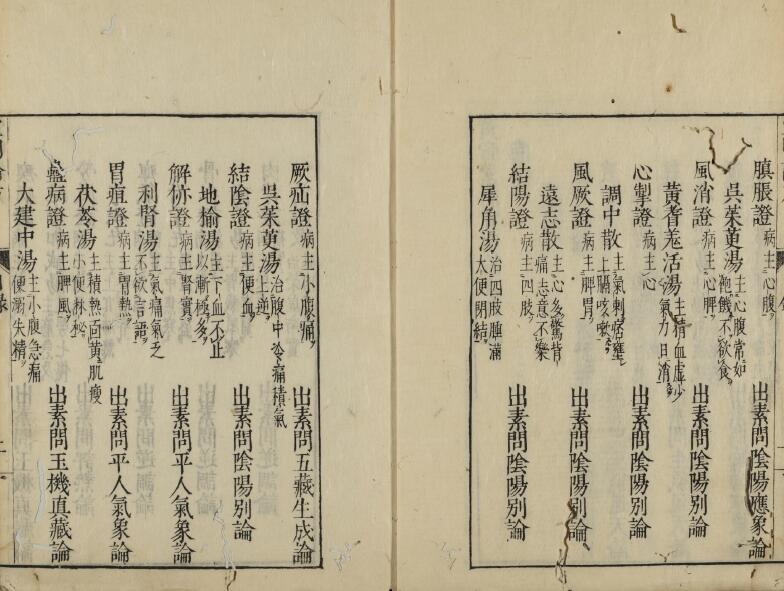 䐜脹證 病主心腹 出素問陰陽應象論
吳茱萸湯 主心腹常如飽饑不欲食
風消證 病主心脾 出素問陰陽別論
黃耆羗活湯 主精血虛少氣力日消
心掣證 病主心 出素問陰陽別論
調中散 主氣刺痞壅上膈咳嗽
風厥證 病主脾胃 出素問陰陽別論
遠志散 主心多驚背痛志意不樂
結陽證 病主四肢 出素問陰陽別論
犀角湯 治四肢腫滿大便閉結
厥疝證 病主小腹痛 出素問五藏生成論
吳茱萸湯 治腹中冷痛積氣上逆
結陰證 病主便血 出素問陰陽別論
地榆湯 主下血不止以漸極多
解㑊證 病主腎實 出素問平人氣象論
利腎湯 主氣痛氣乏不欲言語
胃疸證 病主胃熱 出素問平人氣象論
茯苓湯 主積熱面黃肌瘦小便淋秘
蠱病證 病主脾風 出素問玉機真藏論
大建中湯 主小腹急痛便溺失精